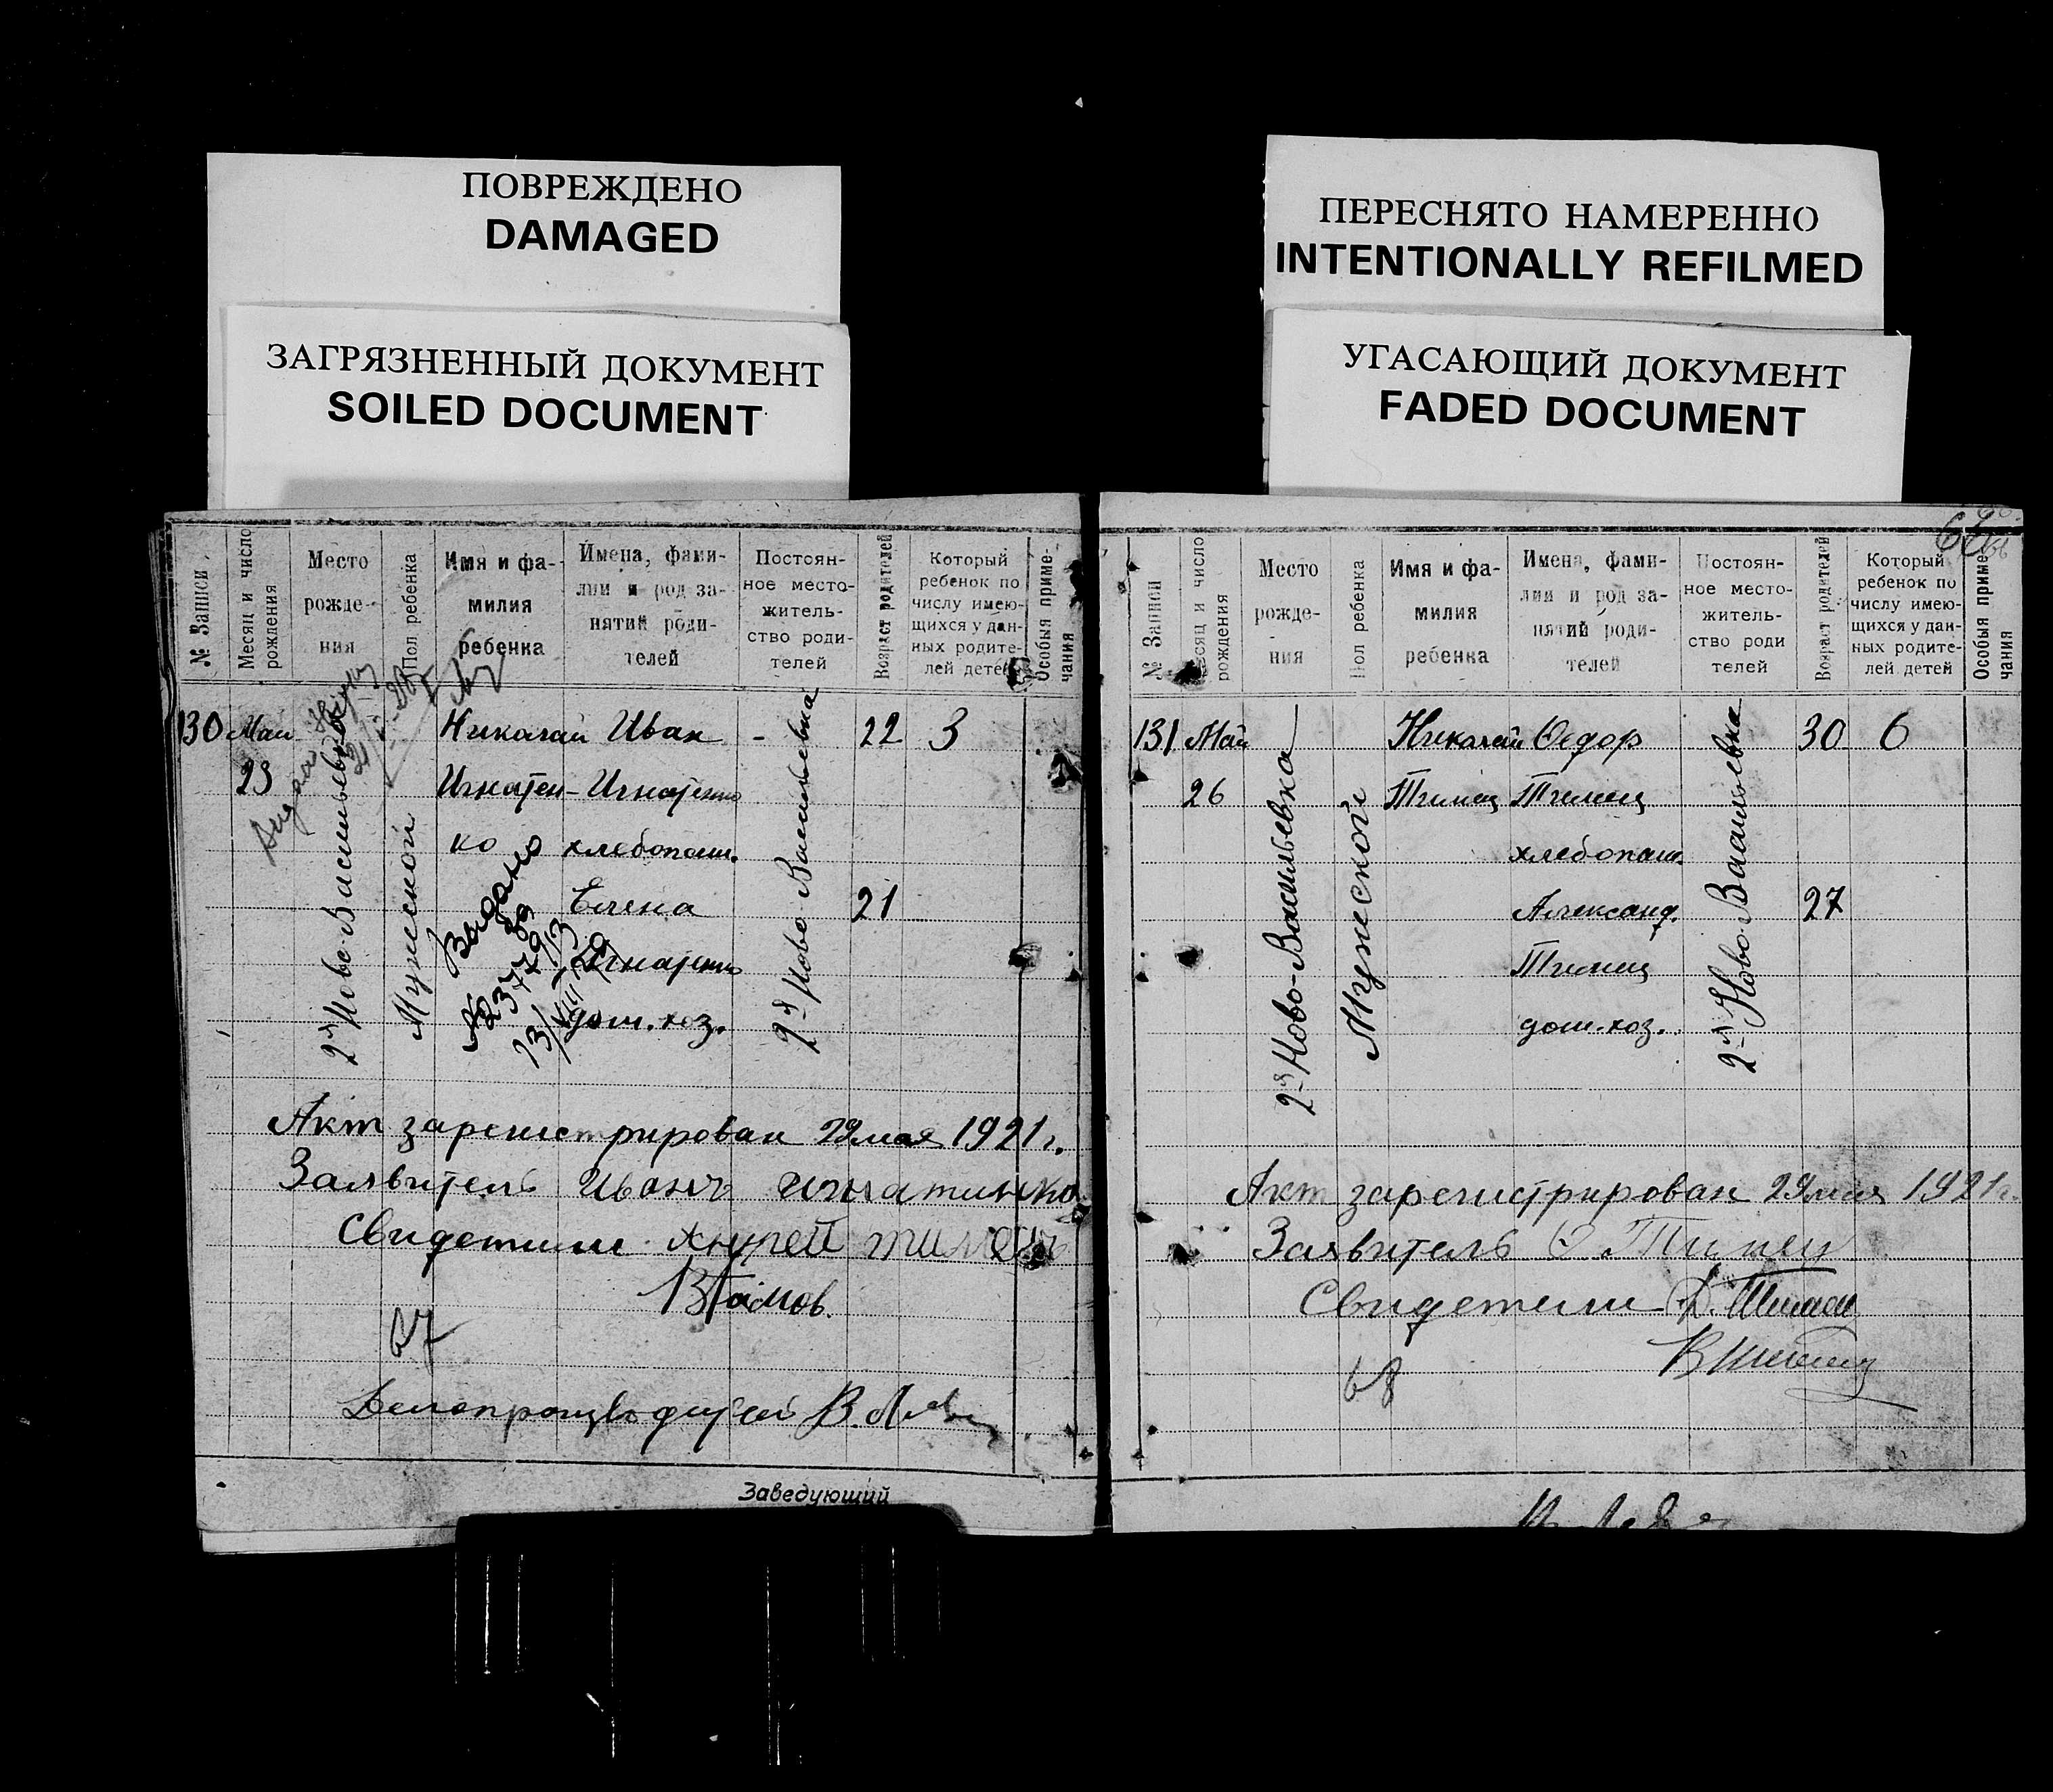 ПОВРЕЖДЕНО
DAMAGED
ЗАГРЯЗНЕННЫЙ ДОКУМЕНТ
SOILED DOCUMENT
ПЕРЕСНЯТО НАМЕРЕННО
INTENTIONALLY REFILMED
УГАСАЮЩИЙ ДОКУМЕНТ
FADED DOCUMENT
№ Записи
Месяц и число рождения
Место рожде-
ния
Пол ребенка
Имя и фа-
милия
ребенка
Имена, фами-
лии и род за-
нятий роди-
телей
Постоян-
ное место-
житель-
ство роди-
телей
Возраст родителей
Который
ребенок по
числу имею-
щихся у дан-
ных родите-
лей детей
Особыя приме-
чания
130 Май Николай Иван - 22 3
23 Игнатен- Игнатенко
ко хлебопаш.
Елена 21
Игнатенко
дом. хоз.
2я Ново-Васильевка
Мужеской
2я Ново Васильевка
Выдано
№ 23779/13
13/VIII
Акт зарегистрирован 29 мая 1921 г.
Заявитель Иванъ Игнатинко
Свидетели Андрей Тимецъ
67
Делопроизводитель В.
Заведующий
66
№ Записи
Месяц и число рождения
Место
рожде-
ния
Пол ребенка
Имя и фа-
милия
ребенка
Имена, фами-
лии и род за-
нятий роди-
телей
Постоян-
ное место-
житель-
ство роди
телей
Возраст родителей
Который
ребенок по
числу имею-
щихся у дан-
ных родите-
лей детей
Особыя приме-
чания
131 Май Николай Федор 30 6
26 Тимец Тимец
хлебопаш.
Александ. 27
Тимец
дом. хоз.
2я Ново-Васильевка
Мужеской
2я Ново-Васильевка
Акт зарегистрирован 29 мая 1921 г.
Заявитель Ф Тимец
Свидетели
68